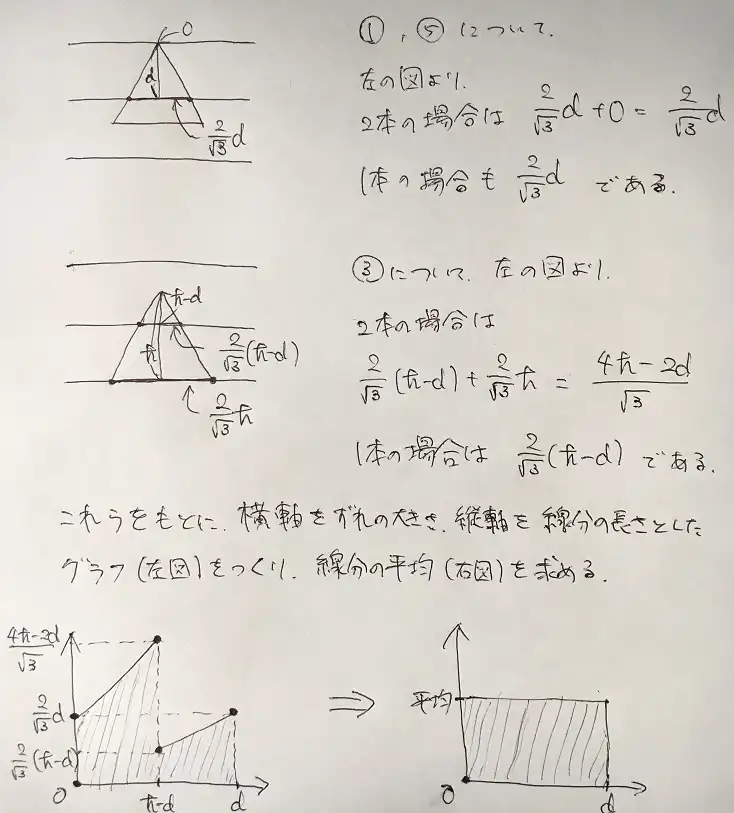 O
d
2/√3 d
①, ⑤ について.
左の図より.
2本の場合は 2/√3 d + 0 = 2/√3 d
1本の場合も 2/√3 d である.
h-d
h
2/√3 (h-d)
2/√3 h
③について. 左の図より.
2本の場合は
2/√3 (h-d) + 2/√3 h = (4h-2d)/√3
1本の場合は 2/√3 (h-d) である.
これらをもとに. 横軸をずれの大きさ. 縦軸を線分の長さとした
グラフ (左図) をつくり. 線分の平均 (右図) を求める.
(4h-2d)/√3
2/√3 d
2/√3 (h-d)
O
h-d
d
⇒
平均
O
d